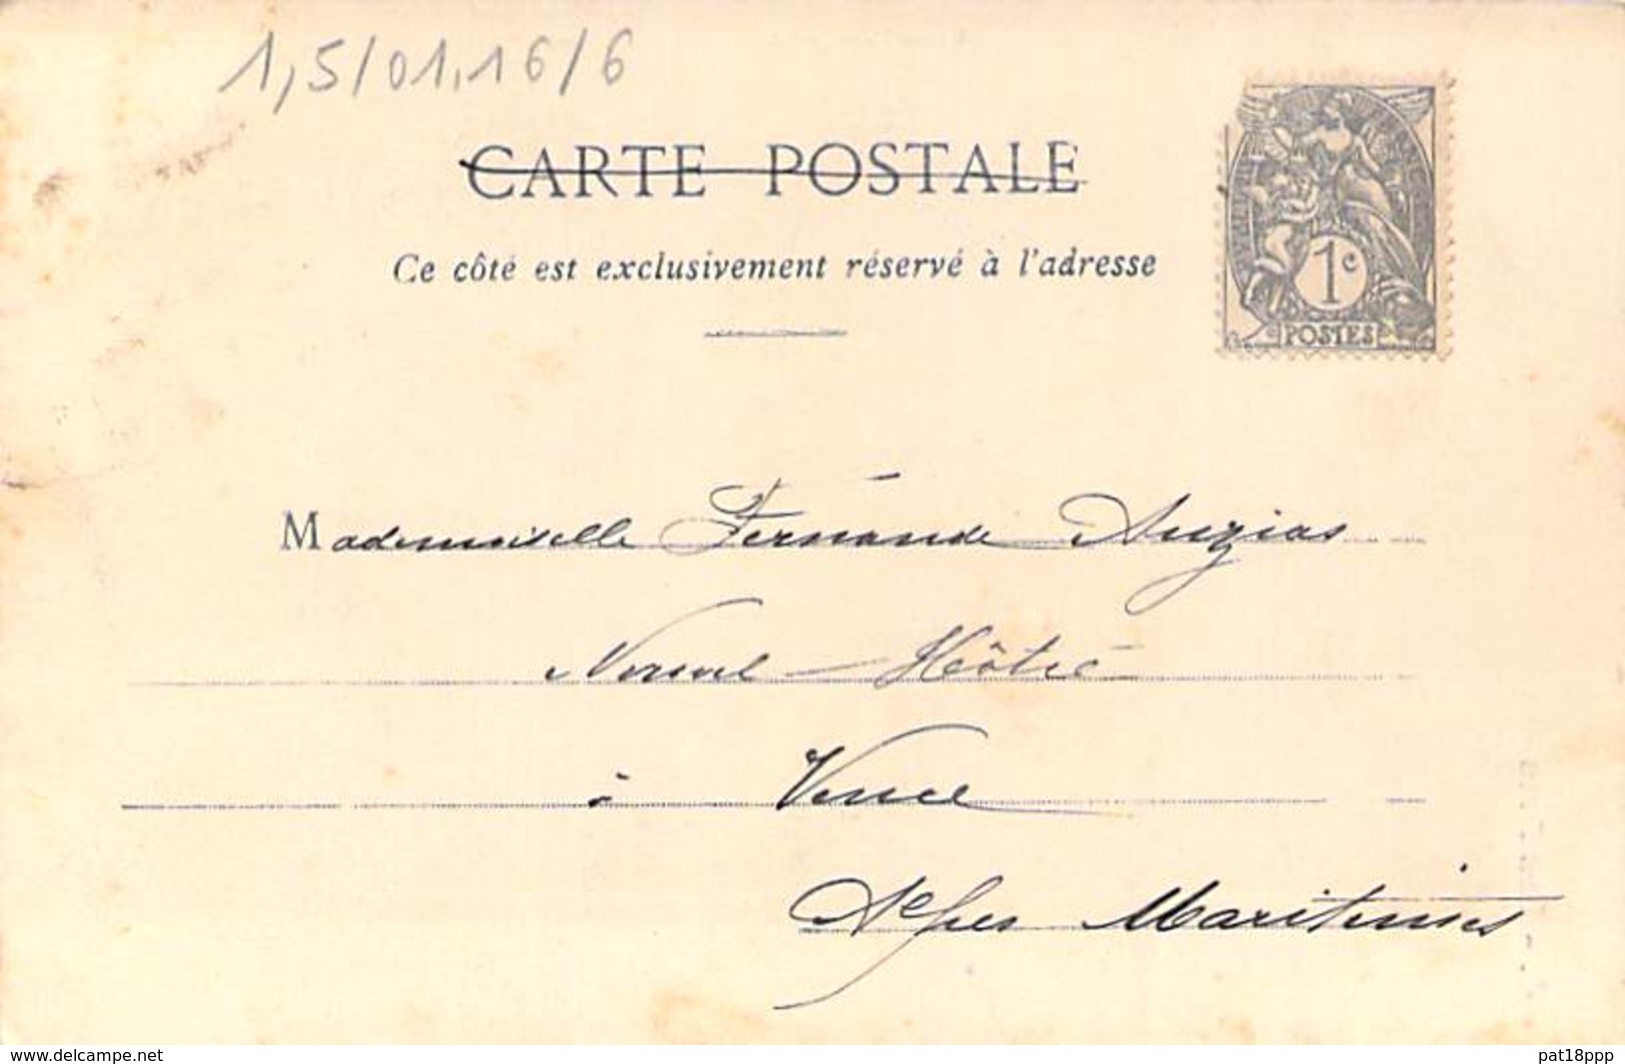 1,5/01.16/6
CARTE POSTALE
Ce côté est exclusivement réservé à l'adresse
1c
POSTES
Mademoiselle Fernande Augias
Hôtel
à Vence
Alpes Maritimes
www.delcampe.net
pat18ppp